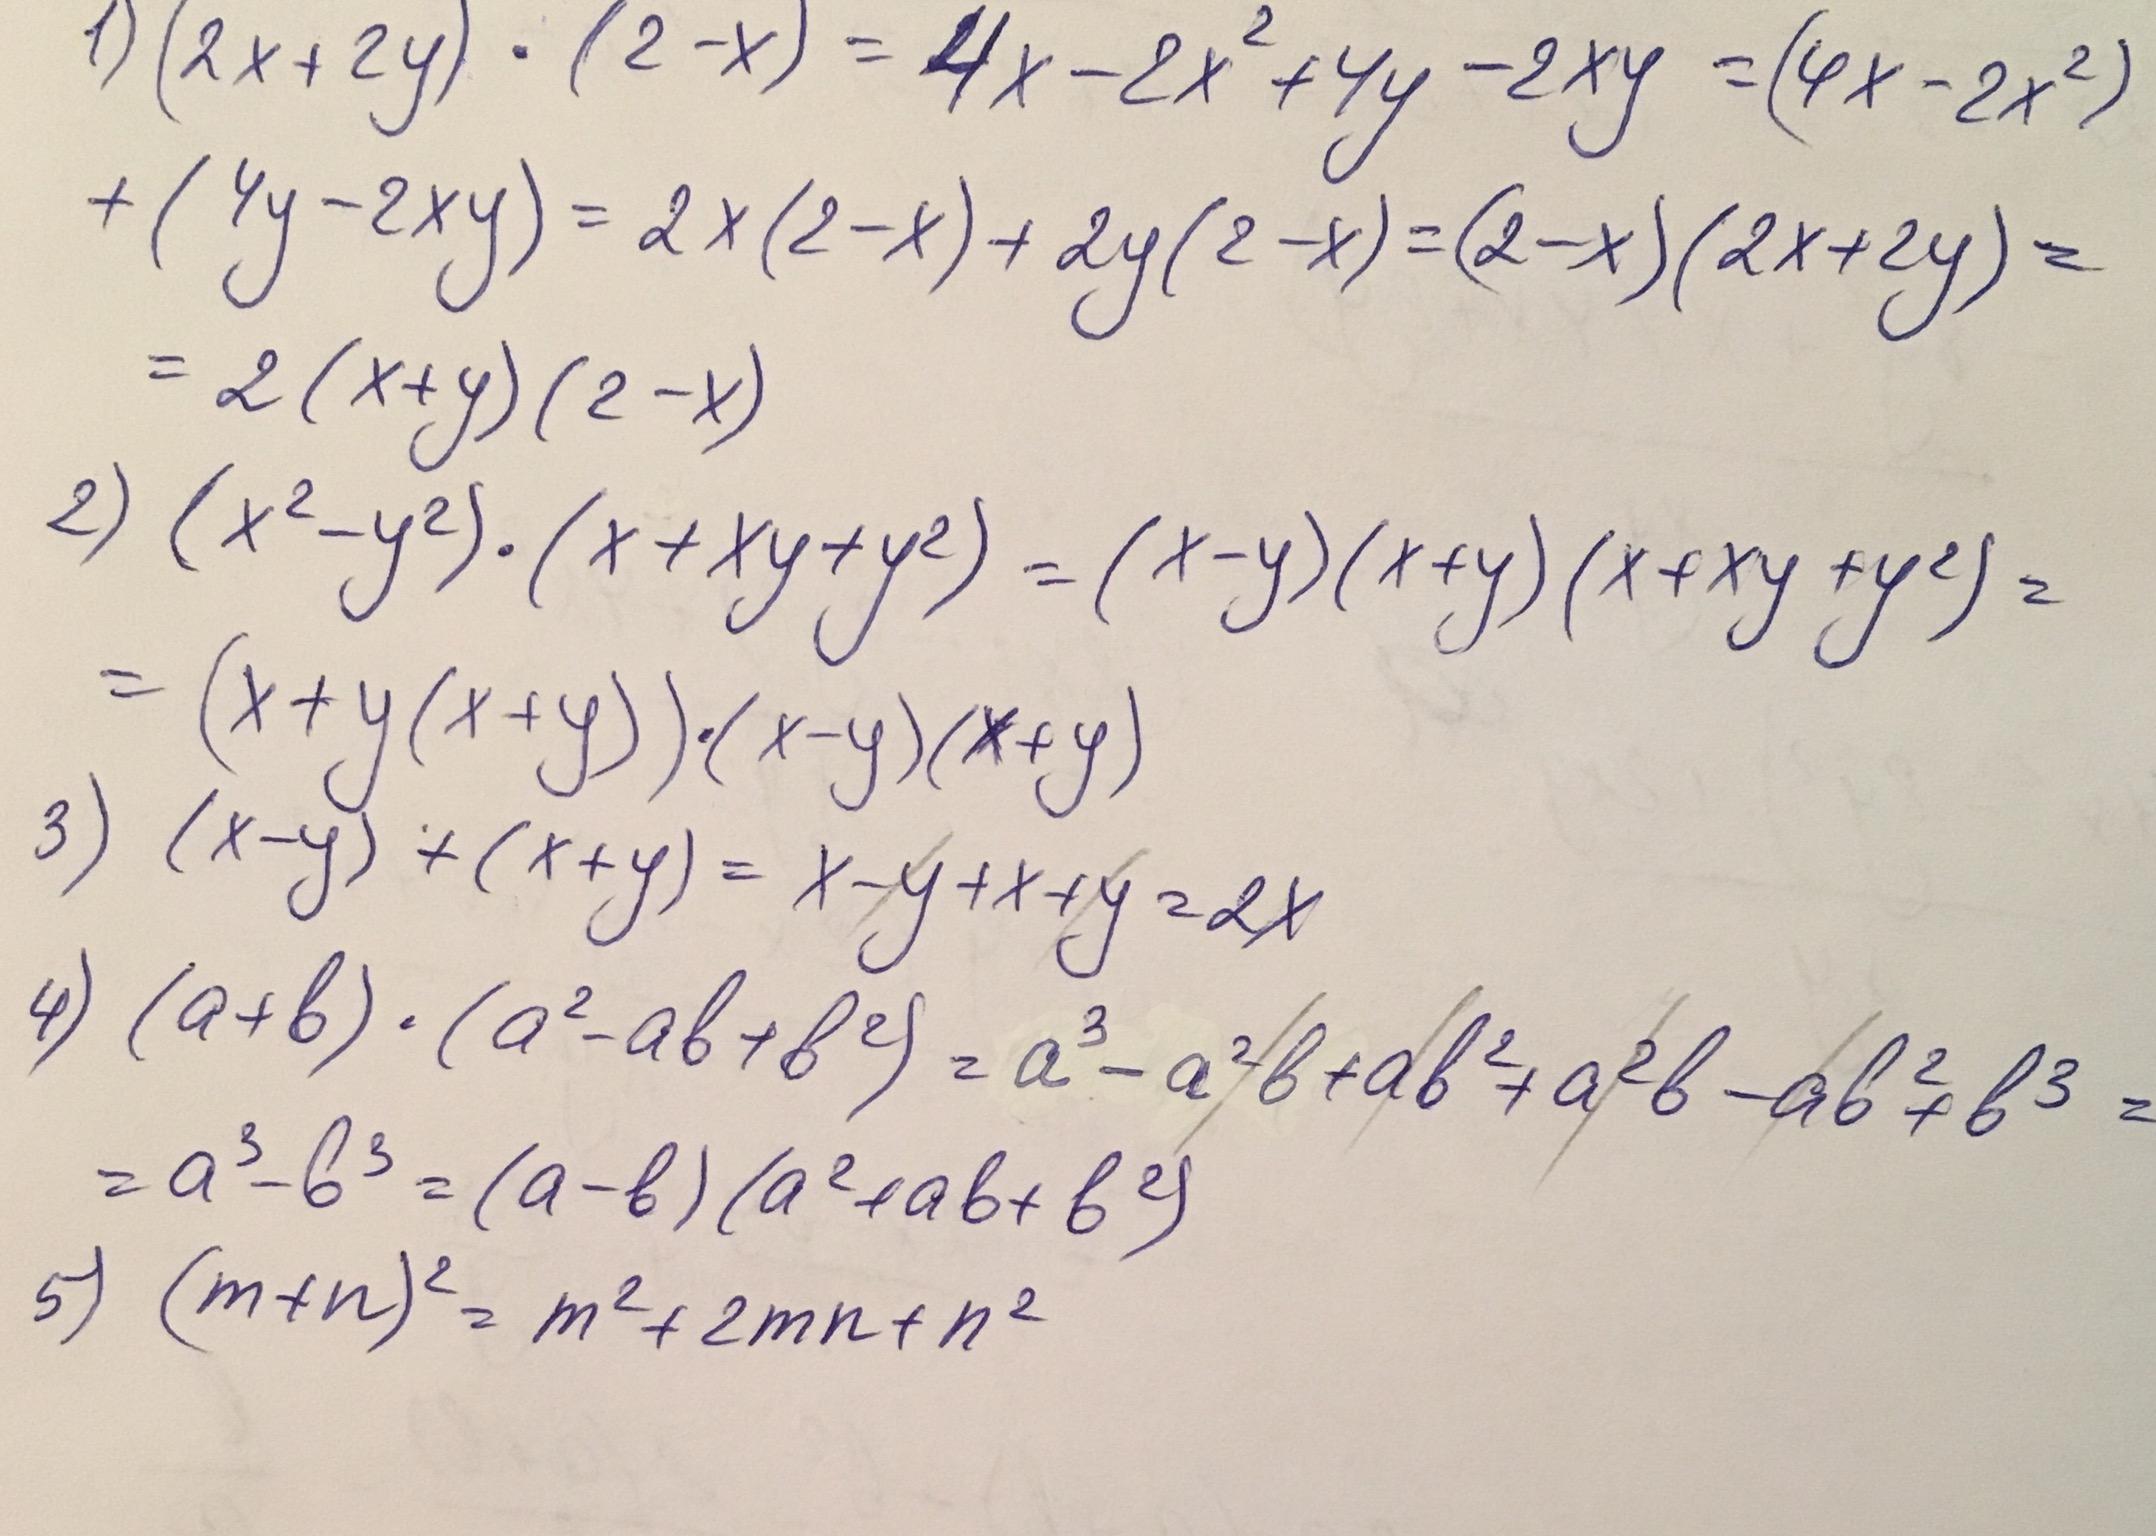 1) (2x+2y) · (2-x) = 4x-2x²+4y-2xy = (4x-2x²)
+ (4y-2xy) = 2x(2-x) + 2y(2-x) = (2-x)(2x+2y) =
= 2(x+y)(2-x)
2) (x²-y²)·(x+xy+y²) = (x-y)(x+y)(x+xy+y²) =
= (x+y(x+y))·(x-y)(x+y)
3) (x-y) + (x+y) = x-y+x+y = 2x
4) (a+b)·(a²-ab+b²) = a³-a²b+ab²+a²b-ab²+b³ =
= a³-b³ = (a-b)(a²+ab+b²)
5) (m+n)² = m²+2mn+n²